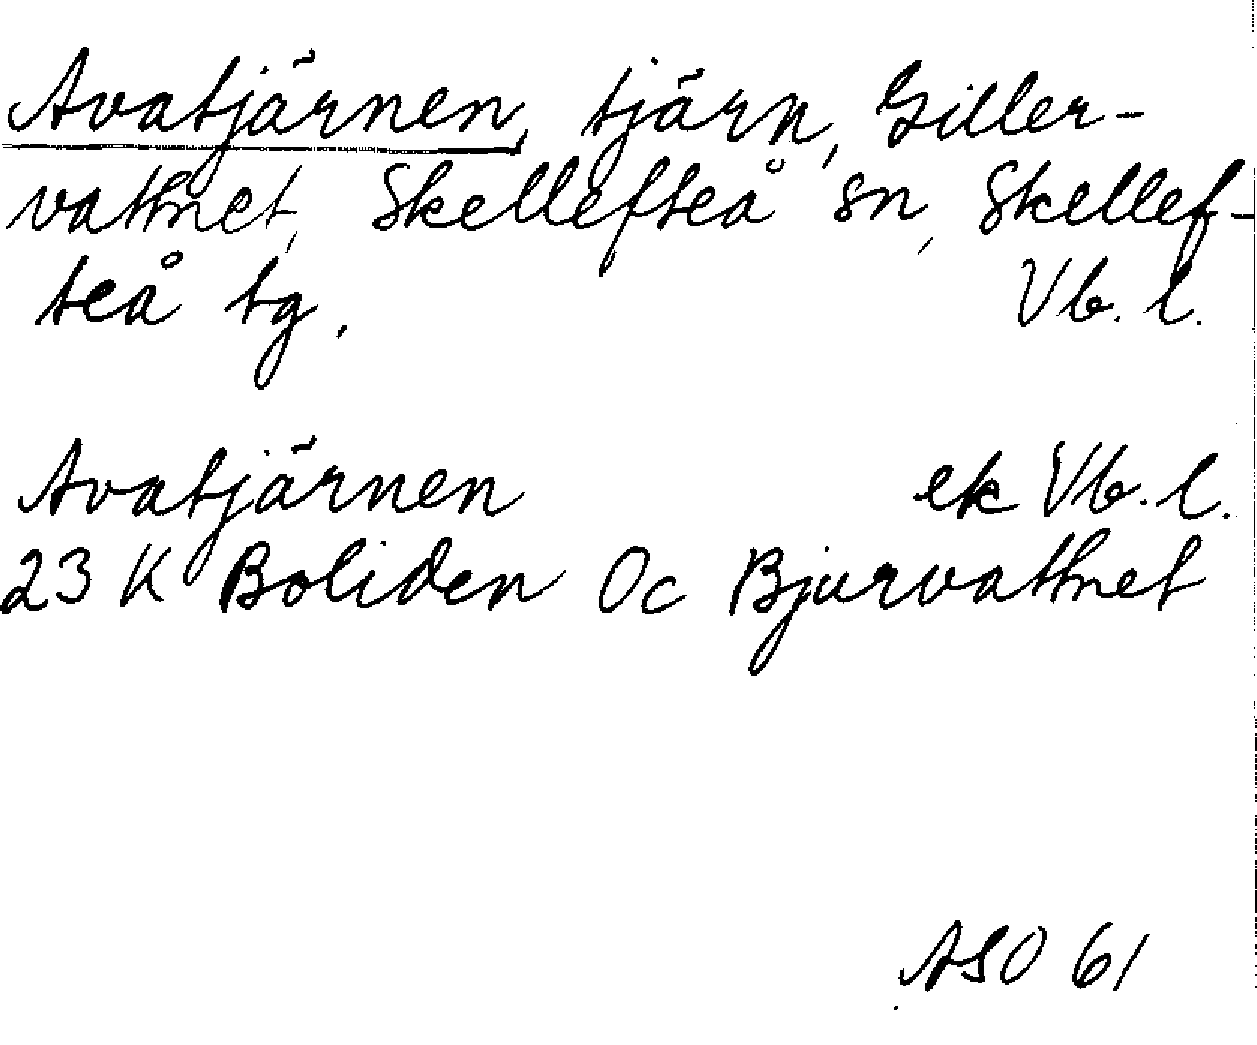 Avatjärnen, tjärn, Giller-
vattnet, Skellefteå sn, Skellef-
teå tg. Vb. l.
Avatjärnen ek Vb. l.
23 K Boliden Oc Bjurvattnet
ASO 61